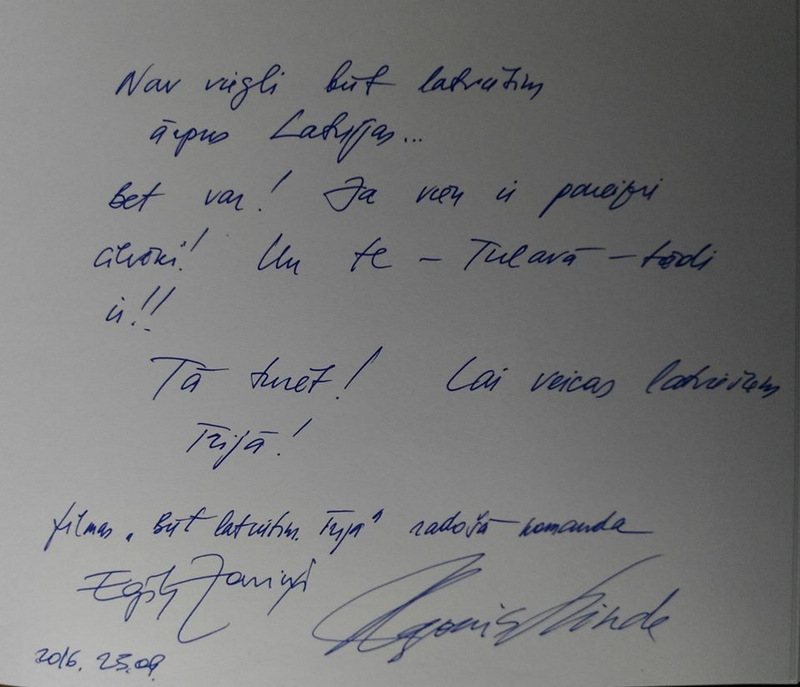 Nav viegli būt latvietim
ārpus Latvijas...
Bet var! Ja vien ir pareizi
cilvēki! Un te – Tulavā – tādi
ir!!
Tā turēt! Lai veicas latviešiem
Īrijā!
filmas „Būt latvietim. Īrijā" radošā komanda
Egils Zariņš
2016. 23.09